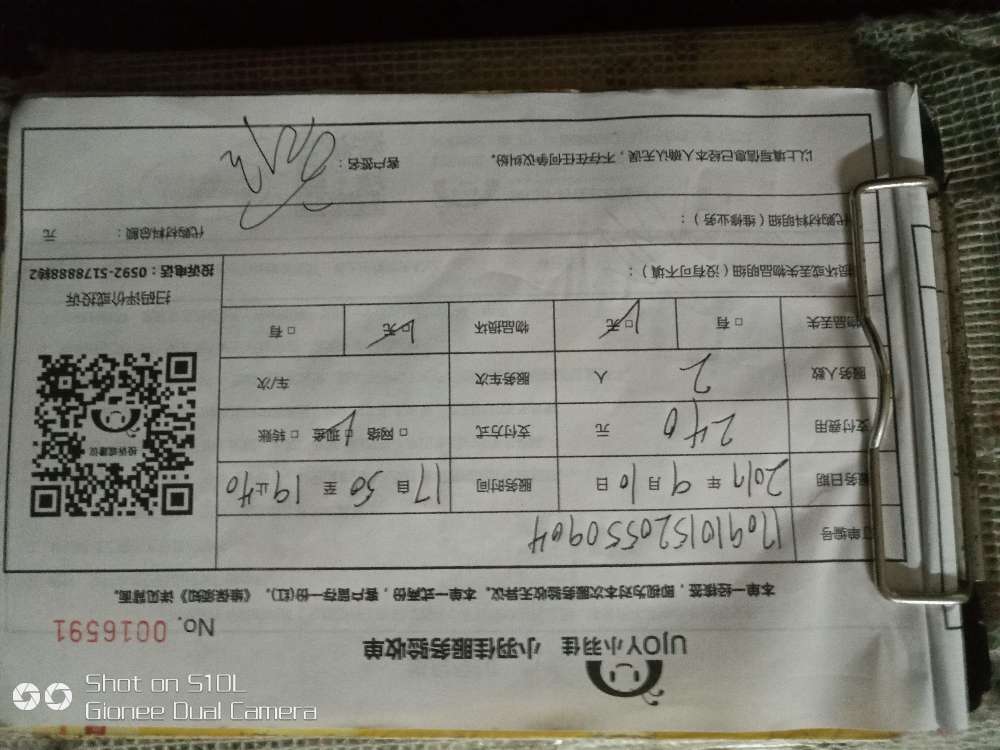 UJOY小羽佳 小羽佳服务验收单
No. 0016591
本单一经核签,即视为对本次服务验收无异议。本单一式两份,客户留存一份(红),《维保须知》详见背面。
订单编号 170910152055 0904
服务日期 2017年9月10日 服务时间 17自50至19止40
支付费用 240元 支付方式 □网络 □现金 □转账
服务人数 2人 服务车次 车/次
物品丢失 □有 □无 物品损坏 □无 □有
损坏或丢失物品明细(没有可不填):
代购材料明细(维修业务): 代购材料总额: 元
以上填写信息已经本人确认无误,不存在任何争议纠纷。 客户签名:
投诉或建议
扫码评价或投诉
投诉电话:0592-5178888转2
Shot on S10L
Gionee Dual Camera